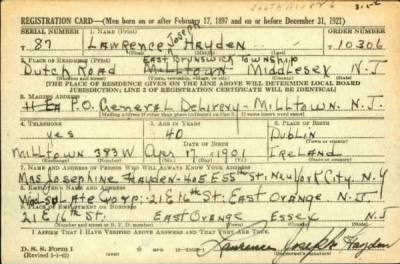 REGISTRATION CARD—(Men born on or after February 17, 1897 and on or before December 31, 1921)
SERIAL NUMBER 1. NAME (Print) ORDER NUMBER
T 87 LAWRENCE JOSEPH HAYDEN 10306
2. PLACE OF RESIDENCE (Print) EAST BRUNSWICK TOWNSHIP
DUTCH ROAD MILLTOWN MIDDLESEX N.J.
[THE PLACE OF RESIDENCE GIVEN ON THE LINE ABOVE WILL DETERMINE LOCAL BOARD
JURISDICTION; LINE 2 OF REGISTRATION CERTIFICATE WILL BE IDENTICAL]
3. MAILING ADDRESS
P.O. GENERAL DELIVERY - MILLTOWN. N.J.
[Mailing address if other than place indicated on line 2. If same insert word same]
4. TELEPHONE 5. AGE IN YEARS 6. PLACE OF BIRTH
YES 40 DUBLIN
DATE OF BIRTH
MILLTOWN 383W 17 1901 IRELAND
7. NAME AND ADDRESS OF PERSON WHO WILL ALWAYS KNOW YOUR ADDRESS
MRS JOSEPHINE HAYDEN - 405 E 55th ST. NEW YORK CITY. N.Y
8. EMPLOYER'S NAME AND ADDRESS
21 E 16th ST. EAST ORANGE N.J.
9. PLACE OF EMPLOYMENT OR BUSINESS
21 E 16th ST. EAST ORANGE ESSEX N.J
I AFFIRM THAT I HAVE VERIFIED ABOVE ANSWERS AND THAT THEY ARE TRUE.
D. S. S. Form 1
Lawrence Joseph Hayden